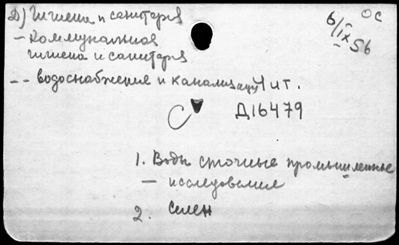 Д) Гигиена и санитария
ОС
6/IX 56
– Коммунальная
гигиена и санитария
– – водоснабжение и канализация
Д16479
1. Воды сточные промышленные
— исследование
2. селен